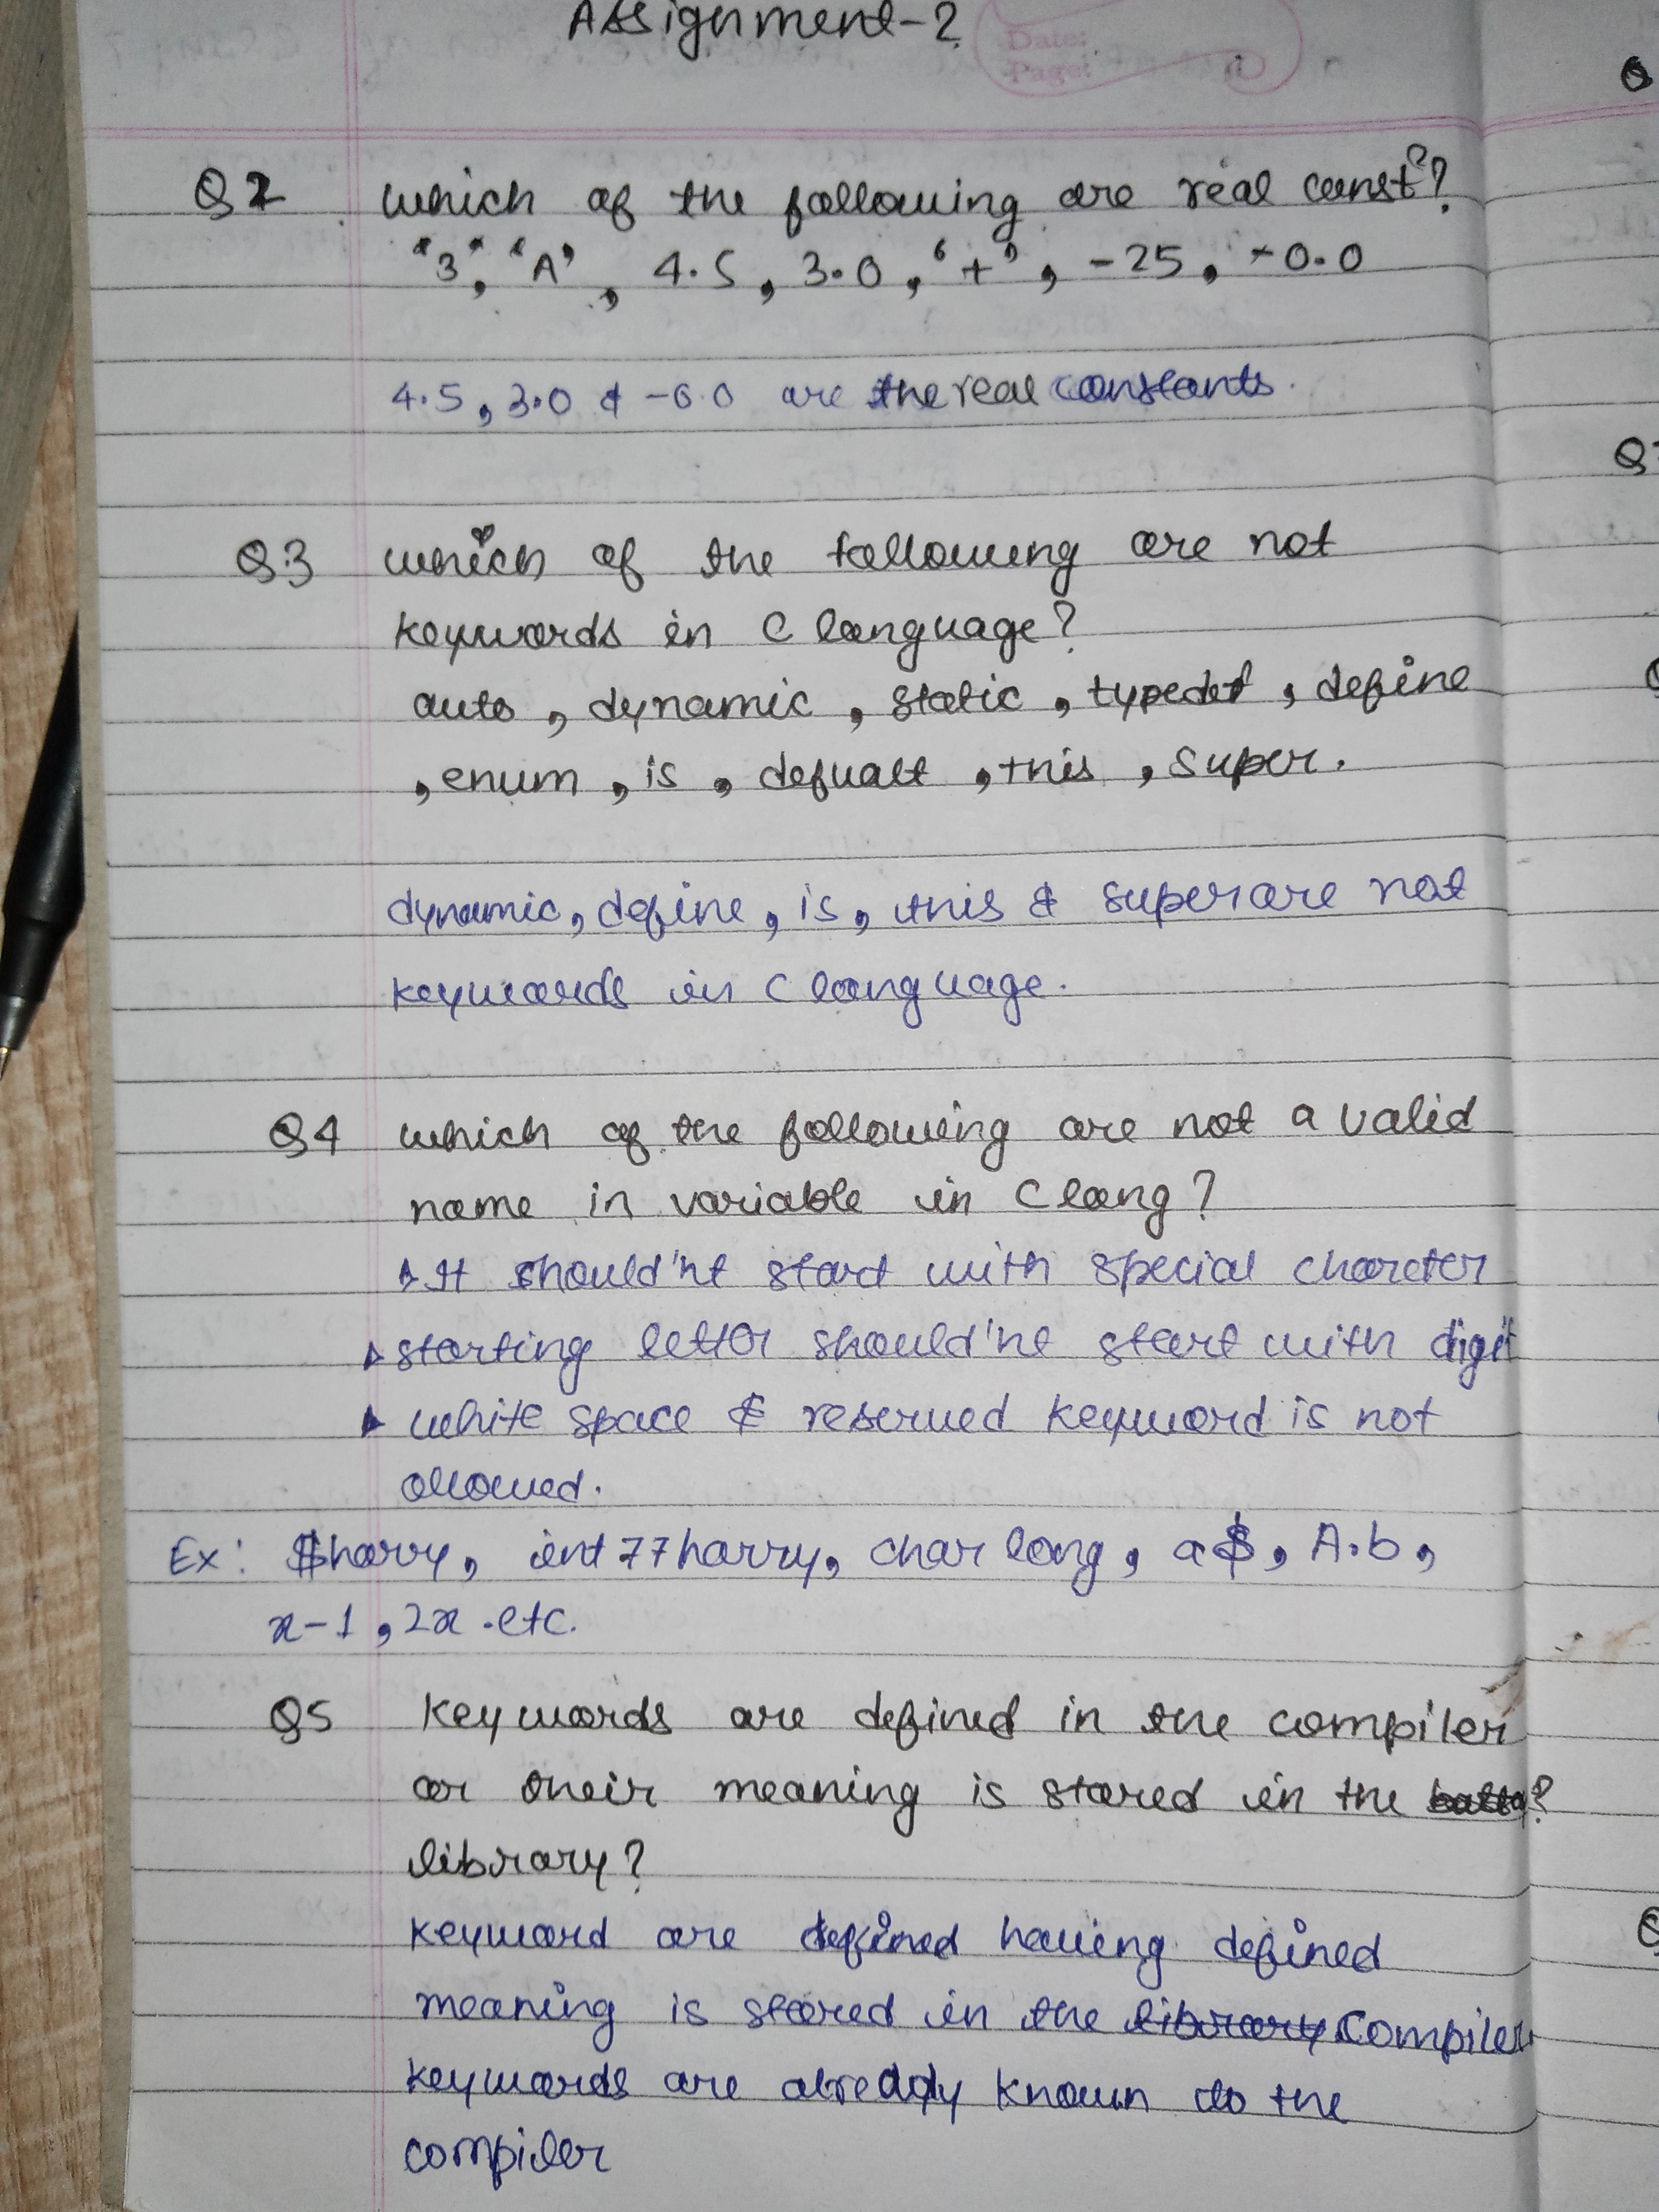 Assignment-2
Date:
Page:
Q2 which of the following are real const?
"3", 'A', 4.5, 3.0, '+', -25, -0.0
4.5, 3.0 & -0.0 are the real constants.
Q.3 which of the following are not
keywords in C language?
auto, dynamic, static, typedef, define
, enum, is, defualt, this, super.
dynamic, define, is, this & super are not
keywords in C language.
Q4 which of the following are not a valid
name in variable in C lang?
It should'nt start with special charcter
starting letter should'nt start with digit
white space & reserved keyword is not
allowed.
Ex: $harry, int 77harry, char long, a$, A.b,
x-1, 2x .etc.
Q5 keywords are defined in the compiler
or their meaning is stored in the ?
library?
keyword are defined having defined
meaning is stored in the library compiler
keywords are already known to the
compiler